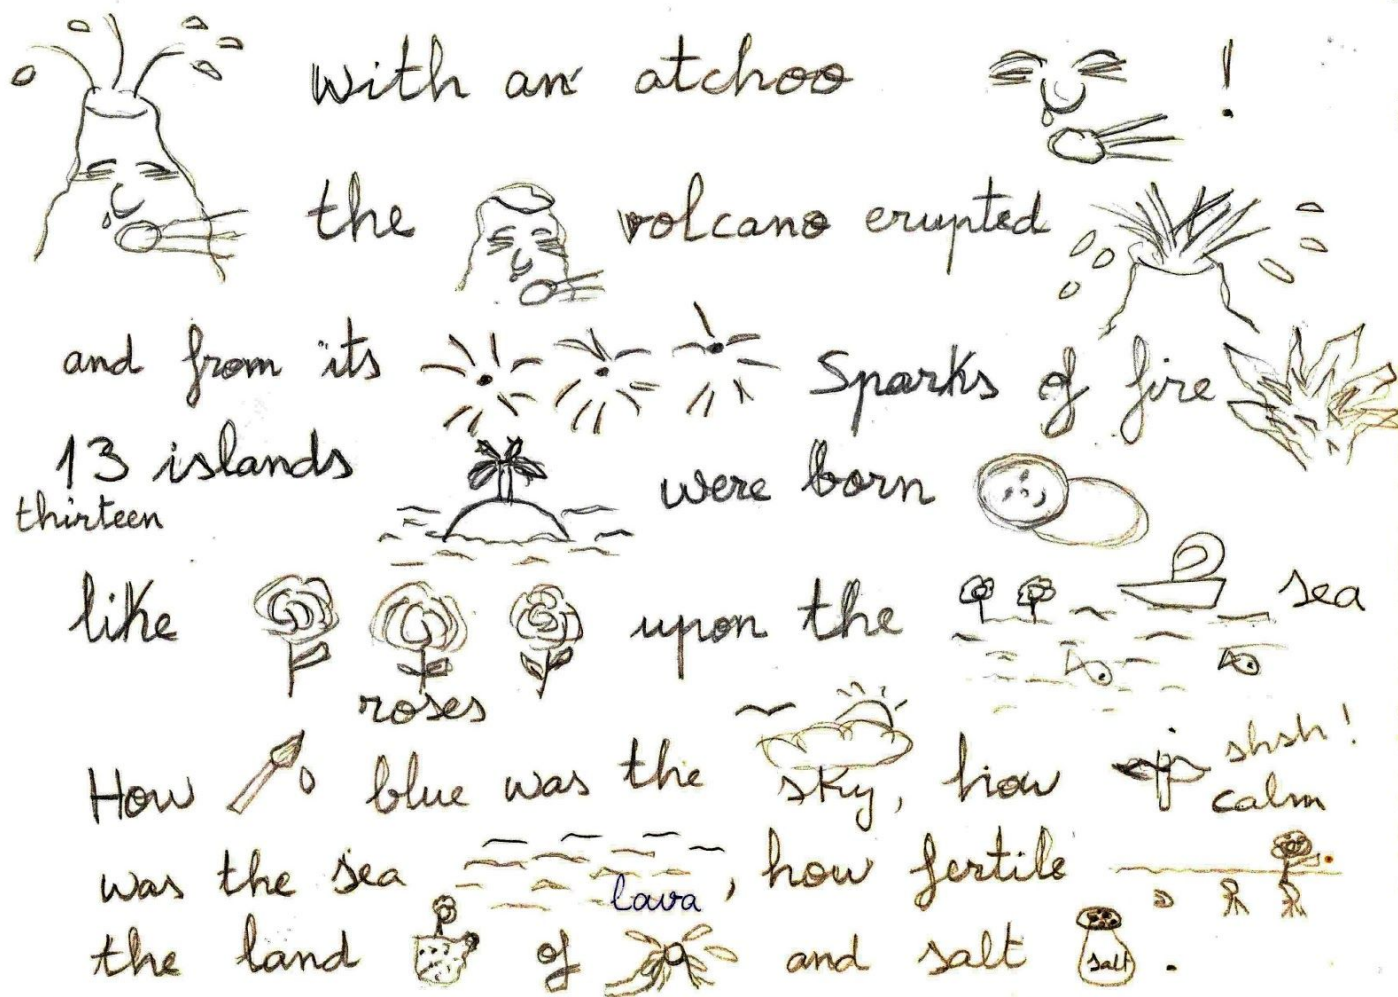 with an atchoo !
the volcano erupted
and from its Sparks of fire
13 islands were born
thirteen
like roses upon the sea
How blue was the sky, how shsh! calm
was the sea, how fertile
the land of lava and salt salt.